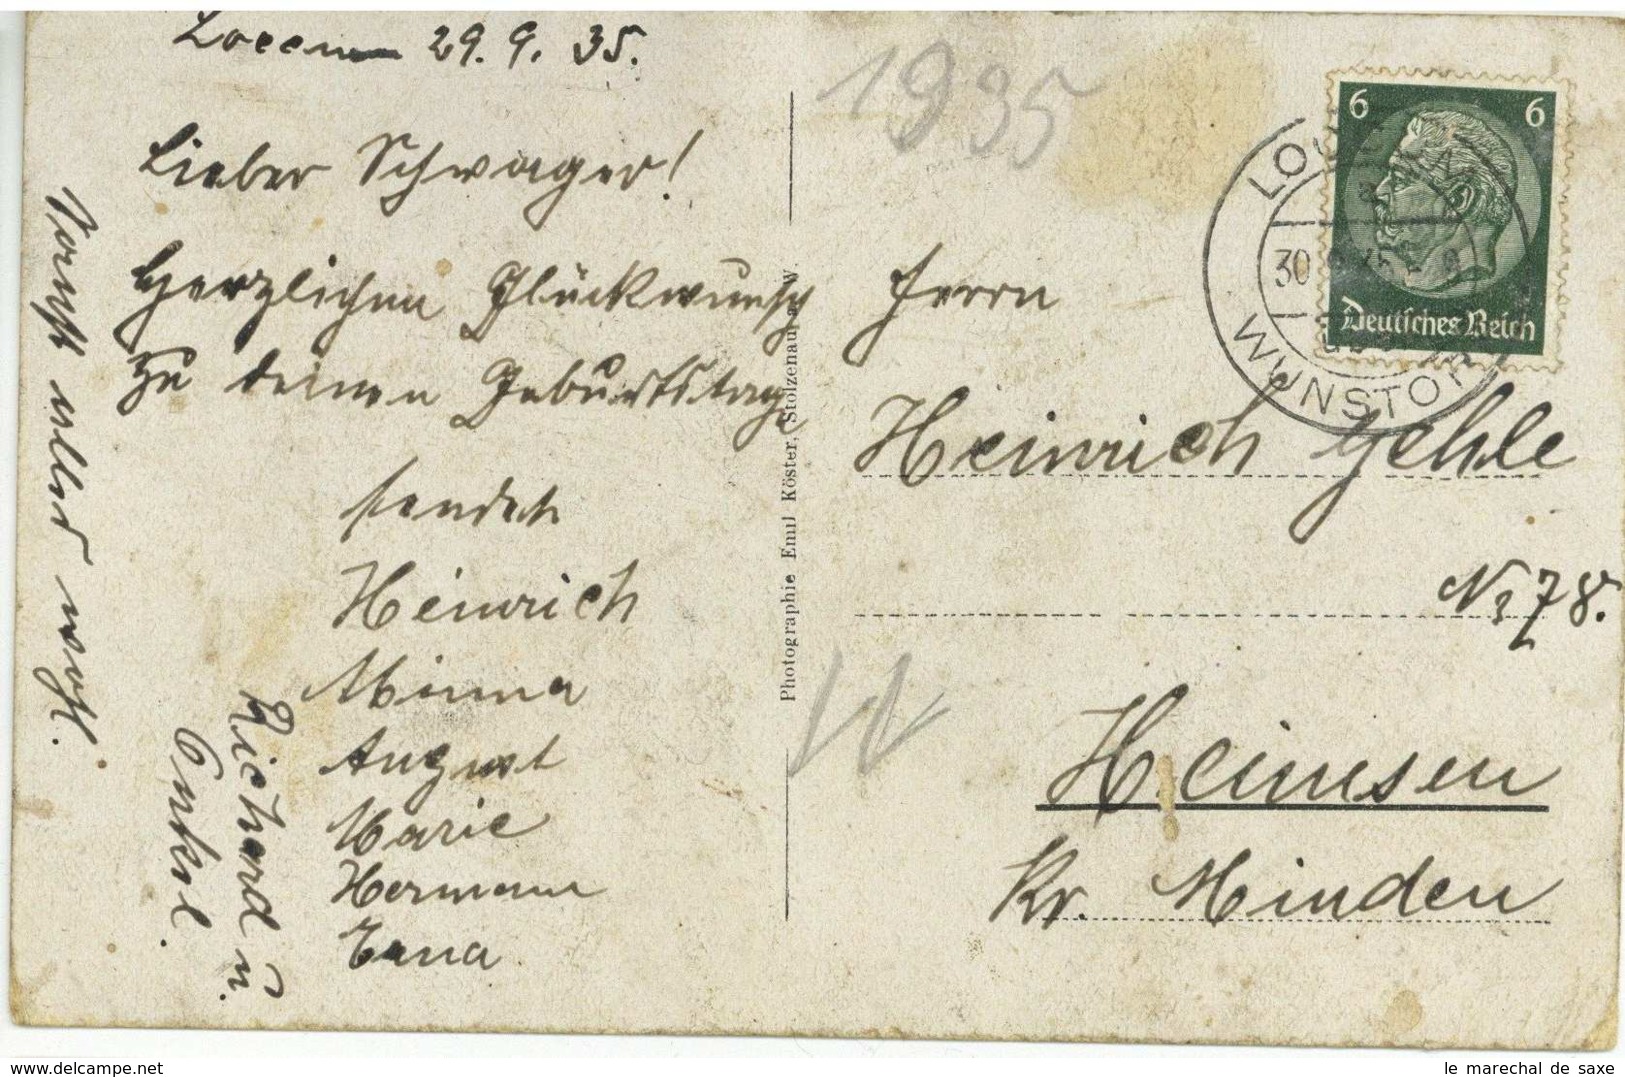 Loccum 29.9.35.
Lieber Schwager!
Herzlichen Glückwunsch
zu deinen Geburtstage
sendet
Heinrich
Minna
August
Marie
Hermann
Erna
Richard u.
Onkel.
sonst alles wohl.
Photographie Emil Köster, Stolzenau a. W.
1935
6 6
Deutsches Reich
LOC
30
WUNSTOR
Herrn
Heinrich Gehle
Nr 78.
Heimsen
Kr. Minden
delcampe.net
le marechal de saxe